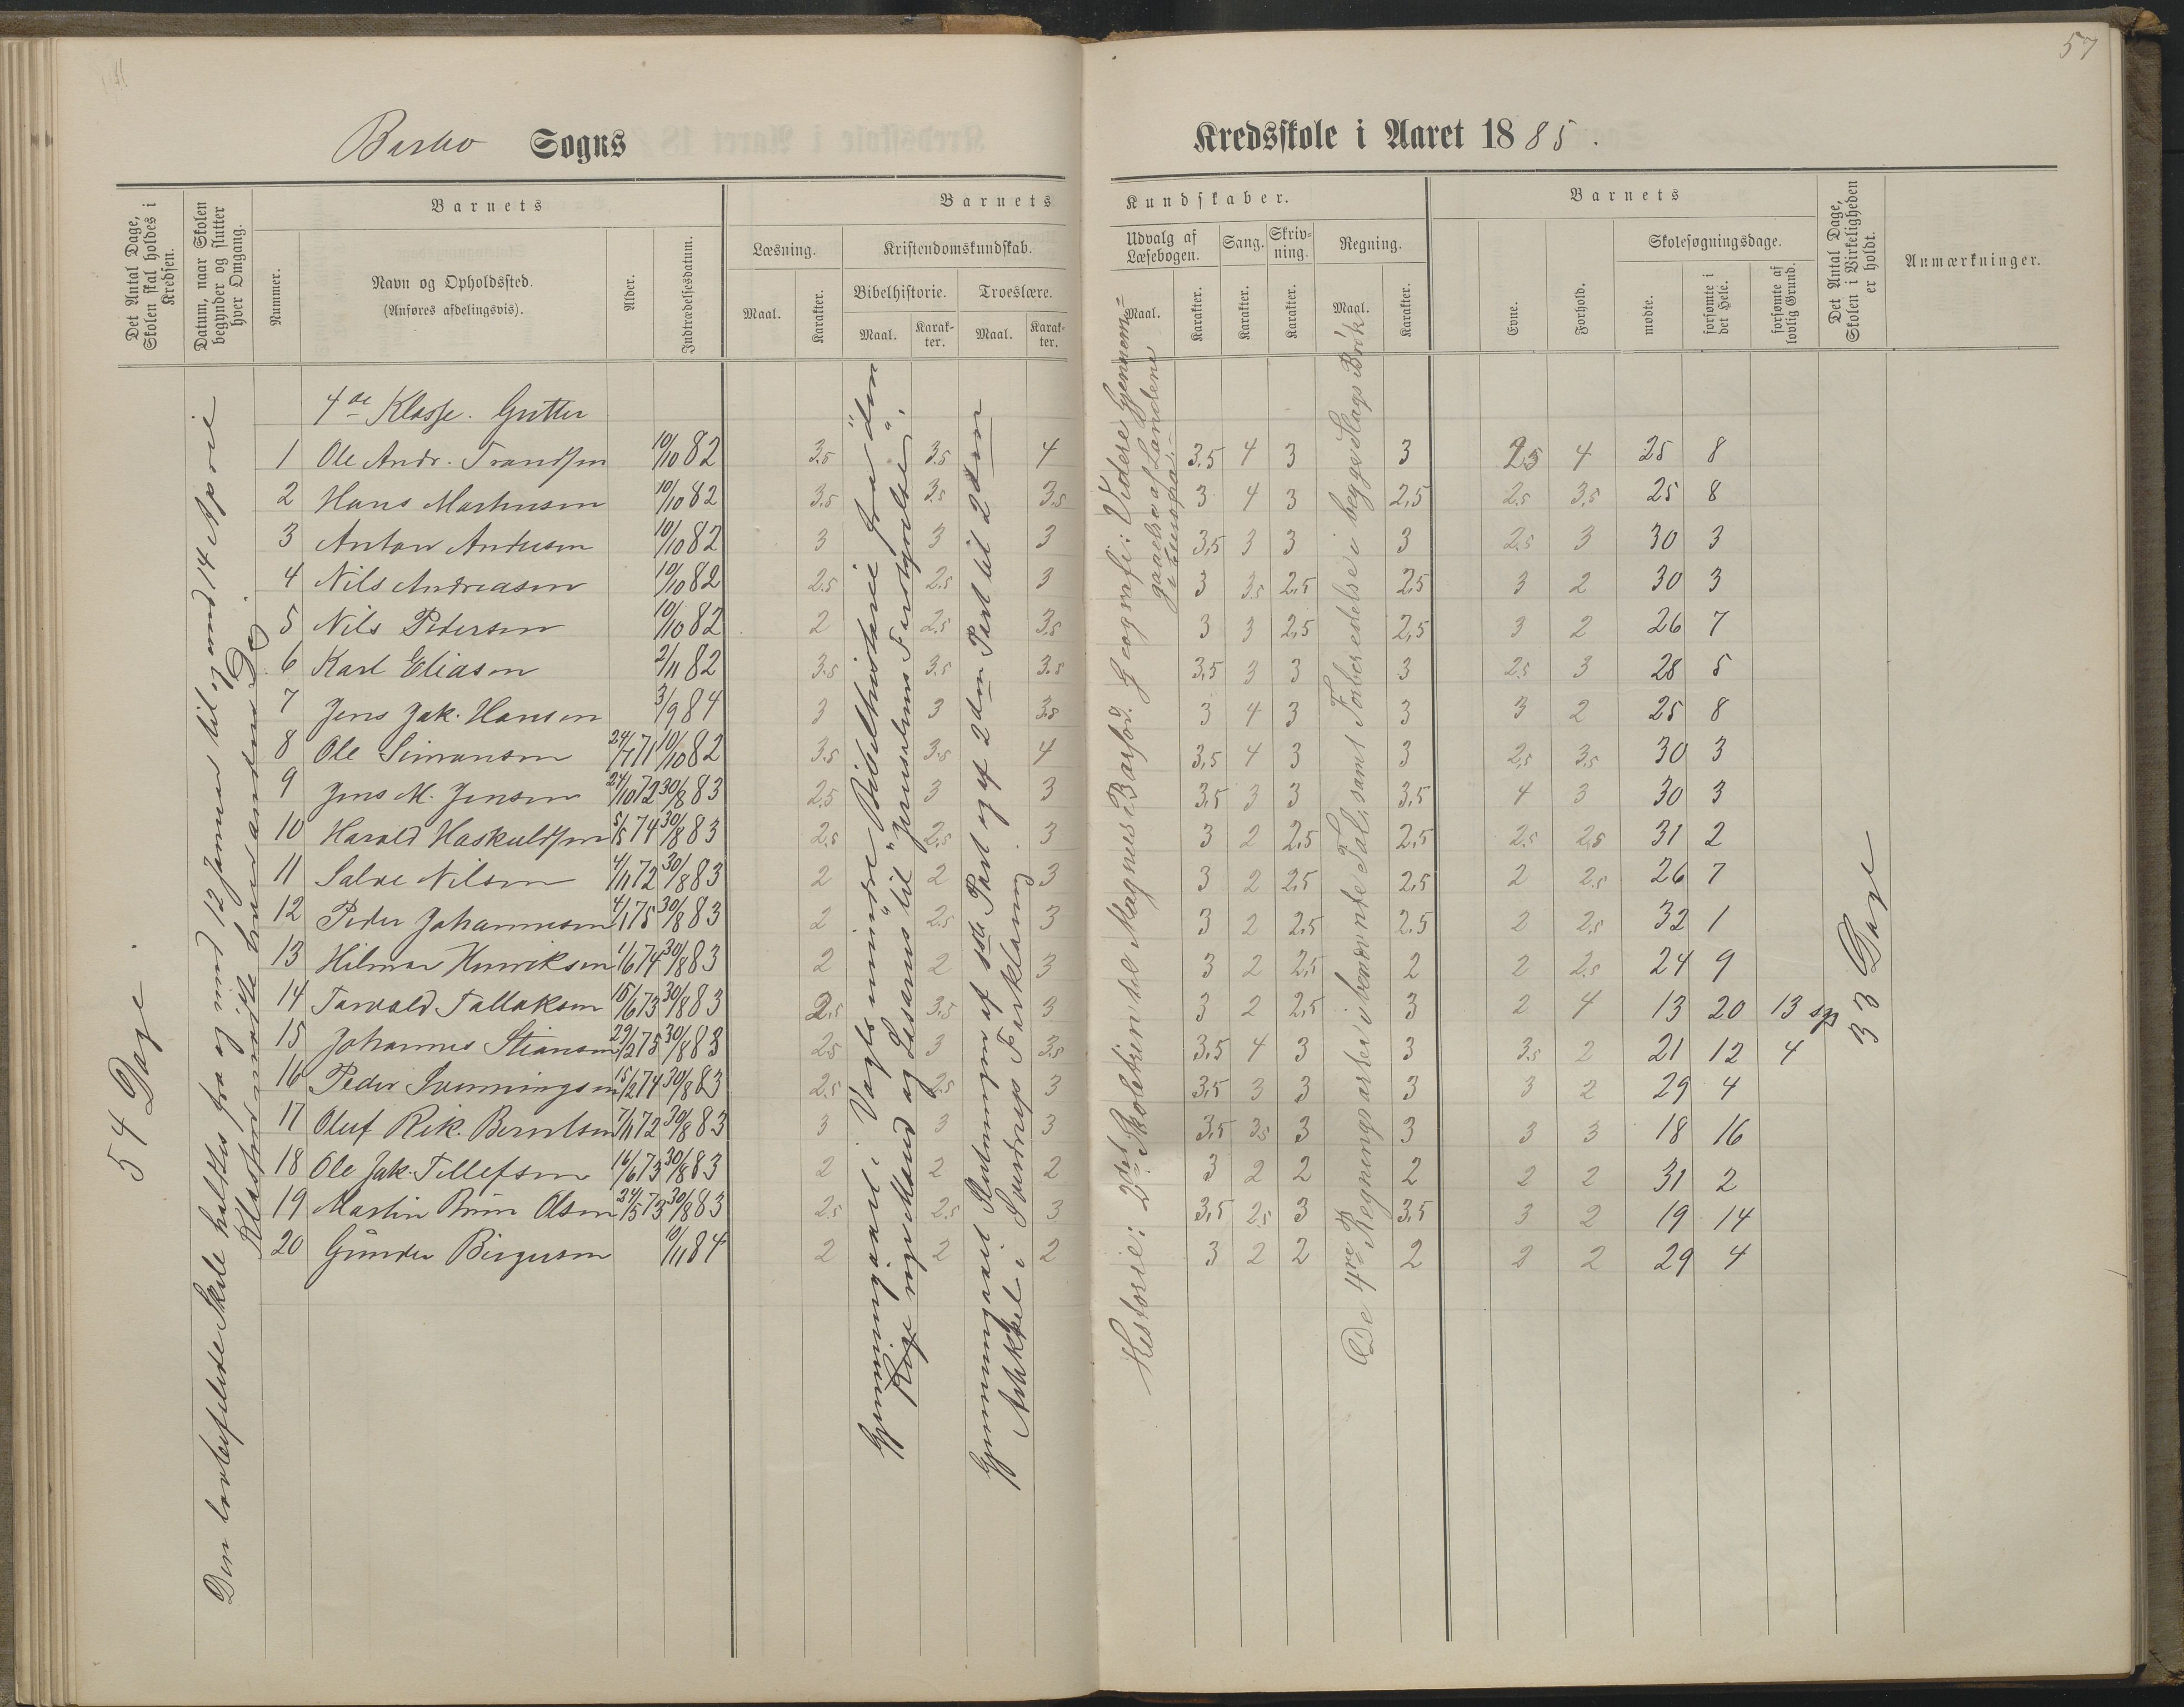 57
Barbo Sogns
Kredsskole i Aaret 1885.
Det Antal Dage, Skolen skal holdes i Kredsen.
Datum, naar Skolen begynder og slutter hver Omgang.
Nummer.
Barnets
Navn og Opholdssted.
(Anføres afdelingsvis).
Alder.
Indtrædelsesdatum.
Barnets
Læsning.
Maal.
Karakter.
Kristendomskundskab.
Bibelhistorie.
Maal.
Karakter.
Troeslære.
Maal.
Karakter.
Kundskaber.
Udvalg af Læsebogen.
Maal.
Karakter.
Sang.
Karakter.
Skrivning.
Karakter.
Regning.
Maal.
Karakter.
Barnets
Evne.
Forhold.
Skolesøgningsdage.
mødte.
forsømte i det Hele.
forsømte af lovlig Grund.
Det Antal Dage, Skolen i Virkeligheden er holdt.
Anmærkninger.
54 Dage.
Skole holdtes fra og med 12 Januar til og med 14 April
Klassen mødte hver anden Dag.
4de Klasse. Gutter
1 Ole Andr. Trandsen 10/10 82 3.5 3.5 4 3,5 4 3 3 2.5 4 25 8
2 Hans Martinsen 10/10 82 3.5 3.5 3.5 3 4 3 2,5 2.5 3.5 25 8
3 Anton Andersen 10/10 82 3 3 3 3,5 3 3 3 2.5 3 30 3
4 Nils Andreasen 10/10 82 2.5 2.5 3 3 3.5 2,5 2,5 3 2 30 3
5 Nils Pedersen 10/10 82 2 2.5 3.5 3 3 2,5 2,5 3 2 26 7
6 Karl Eliasen 2/11 82 3.5 3.5 3.5 3,5 3 3 3 2.5 3 28 5
7 Jens Jak. Hansen 3/9 84 3 3 3.5 3 4 3 3 3 2 25 8
8 Ole Simonsen 24/7 71 10/10 82 3.5 3.5 4 3,5 4 3 3 2,5 3.5 30 3
9 Jens M. Jensen 24/10 72 30/8 83 2.5 3 3 3,5 3 3 3,5 4 3 30 3
10 Harald Haskuldsen 5/5 74 30/8 83 2.5 2.5 3 3 2 2,5 2,5 2.5 2,5 31 2
11 Salve Nilsen 4/11 72 30/8 83 2 2 3 3 2 2,5 2,5 2 2.5 26 7
12 Peder Johannesen 4/1 75 30/8 83 2 2.5 3 3 2 2,5 2.5 2 2.5 32 1
13 Hilmar Henriksen 1/6 74 30/8 83 2 2 3 3 2 2,5 2 2 2.5 24 9
14 Torvald Tallaksen 15/6 73 30/8 83 2.5 3.5 3 3 2 2,5 3 2 4 13 20 13 syg
15 Johannes Stiansen 29/2 75 30/8 83 2.5 3 3.5 3,5 4 3 3 3.5 2 21 12 4
16 Peder Svenningsen 15/2 74 30/8 83 2.5 2.5 3 3,5 3 3 3 3 2 29 4
17 Oluf Rik. Berntsen 7/11 72 30/8 83 3 3 3 3,5 3.5 3 3 3 3 18 16
18 Ole Jak. Tellefsen 16/6 73 30/8 83 2 2 2 3 2 2 2 2 2 31 2
19 Martin Olsen 24/5 73 30/8 83 2.5 2.5 3 3,5 2.5 3 3,5 3 2 19 14
20 Gunder Birgersen 10/11 84 2 2 2 3 2 2 2 2 2 29 4
Gjennemgaaet i Vogts mindre Bibelhistorie fra "den
Rige unge Mand og Lazarus" til "Jerusalems Forstyrrelse".
Gjennemgaaet Slutningen af 1ste Part og af 2den Part til 2den
Artikkel i Sverdrups Forklaring
Historie: 2det Skoletrin Magnus Barfod. Geografi: Videre Gjennem-
gaaelse af Landene
i Europa.
De 4re Regningsarter i benævnte Tal, samt Forberedelse i begge Slags Brøk
33 Dage